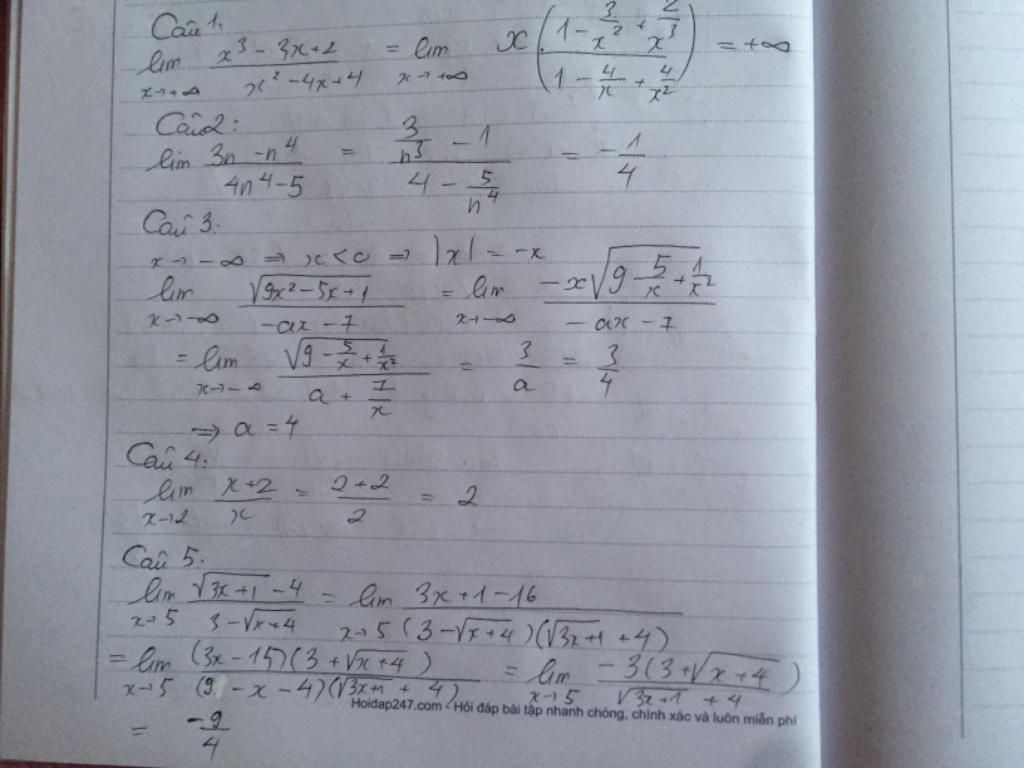 Câu 1.
lim x→+∞ (x³ - 3x + 2)/(x² - 4x + 4) = lim x→+∞ x · ((1 - 3/x² + 2/x³)/(1 - 4/x + 4/x²)) = +∞
Câu 2:
lim (3n - n⁴)/(4n⁴ - 5) = (3/n³ - 1)/(4 - 5/n⁴) = -1/4
Câu 3.
x → -∞ ⇒ x < 0 ⇒ |x| = -x
lim x→-∞ √(9x² - 5x + 1)/(-ax - 7) = lim x→-∞ (-x√(9 - 5/x + 1/x²))/(-ax - 7)
= lim x→-∞ √(9 - 5/x + 1/x²)/(a + 7/x) = 3/a = 3/4
⇒ a = 4
Câu 4.
lim x→2 (x+2)/x = (2+2)/2 = 2
Câu 5.
lim x→5 (√(3x+1) - 4)/(3 - √(x+4)) = lim x→5 (3x + 1 - 16)/((3 - √(x+4))(√(3x+1) + 4))
= lim x→5 ((3x - 15)(3 + √(x+4)))/((9 - x - 4)(√(3x+1) + 4)) = lim x→5 (-3(3 + √(x+4)))/(√(3x+1) + 4)
Hoidap247.com - Hỏi đáp bài tập nhanh chóng, chính xác và luôn miễn phí
= -9/4